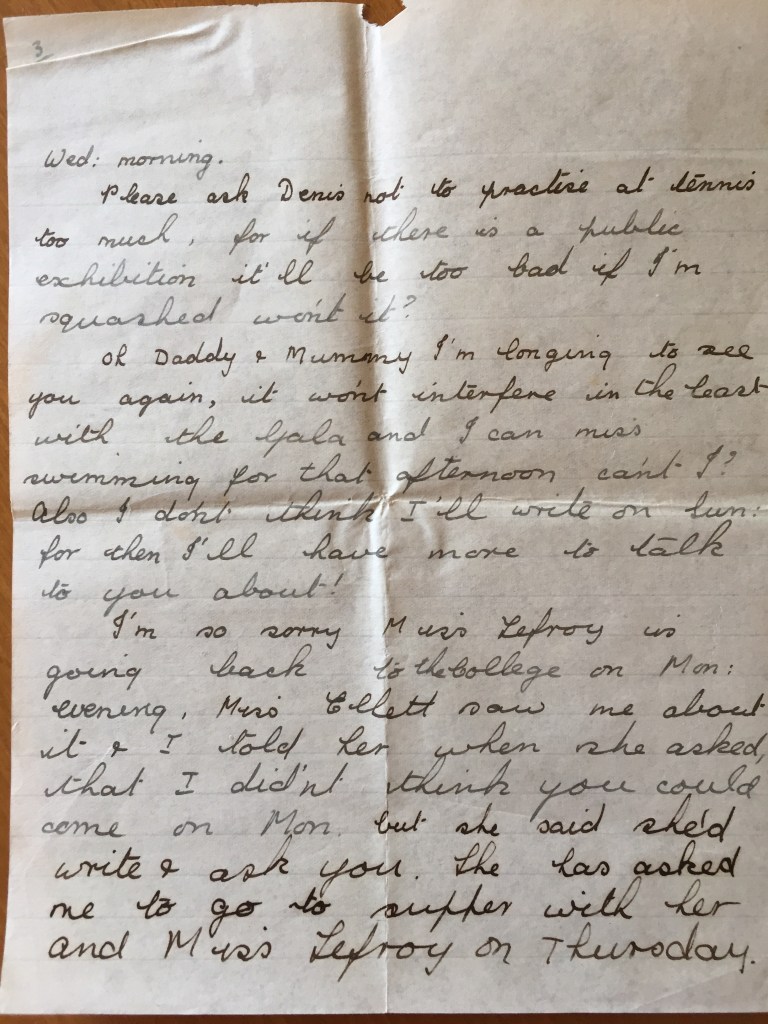 3
Wed: morning.
Please ask Denis not to practise at tennis
too much, for if there is a public
exhibition it'll be too bad if I'm
squashed won't it?
Oh Daddy & Mummy I'm longing to see
you again, it won't interfere in the least
with the Gala and I can miss
swimming for that afternoon can't I?
Also I don't think I'll write on Sun:
for then I'll have more to talk
to you about!
I'm so sorry Miss Lefroy is
going back to the College on Mon:
evening, Miss Ellett saw me about
it & I told her when she asked,
that I did'nt think you could
come on Mon. but she said she'd
write & ask you. She has asked
me to go to supper with her
and Miss Lefroy on Thursday.